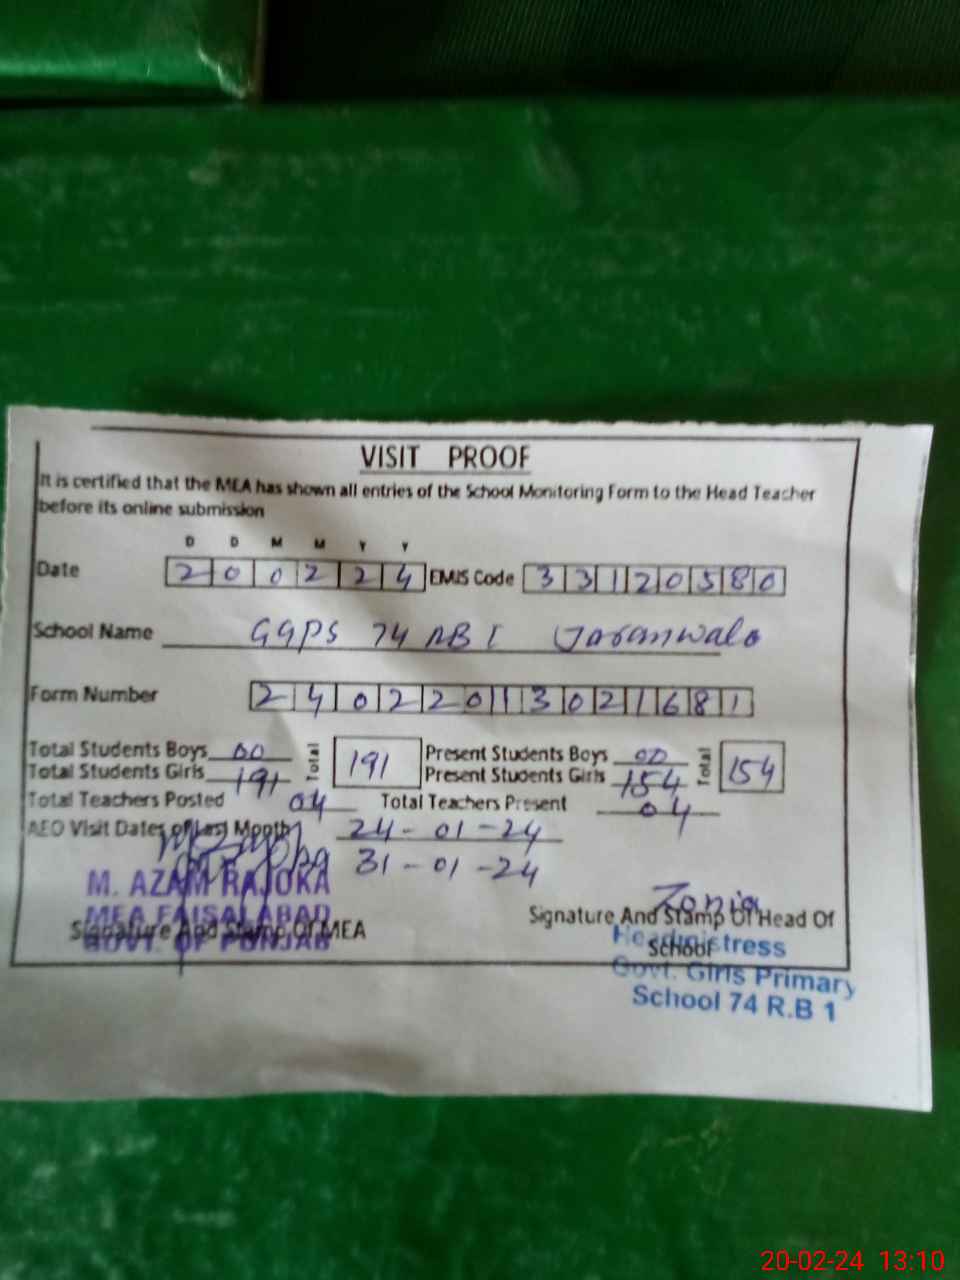 VISIT PROOF
It is certified that the MEA has shown all entries of the School Monitoring Form to the Head Teacher
before its online submission
D D M M Y Y
Date 200224 EMIS Code 33120580
School Name GGPS 74 RB I Jaranwala
Form Number 24022013021681
Total Students Boys 00 Total 191 Present Students Boys 00 Total 154
Total Students Girls 191 Present Students Girls 154
Total Teachers Posted 04 Total Teachers Present 04
AEO Visit Dates of Last Month 24-01-24
31-01-24
M. AZAM RAJOKA
MEA FAISALABAD
GOVT. OF PUNJAB
Signature And Stamp Of MEA
Zonia
Signature And Stamp Of Head Of
School
Headmistress
Govt. Girls Primary
School 74 R.B 1
20-02-24 13:10